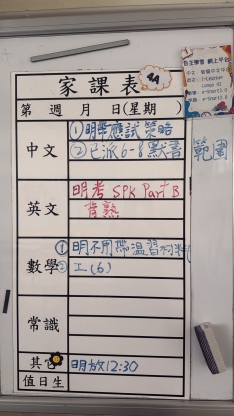 家課表
4A
第 週 月 日(星期 )
中文
①明學應試策略
②已派6-8默書 範圍
英文
明考 SPK Part B
背熟
數學
①明不用帶溫習材料
②工(6)
常識
其它
明放12:30
值日生
自主學習 網上平台